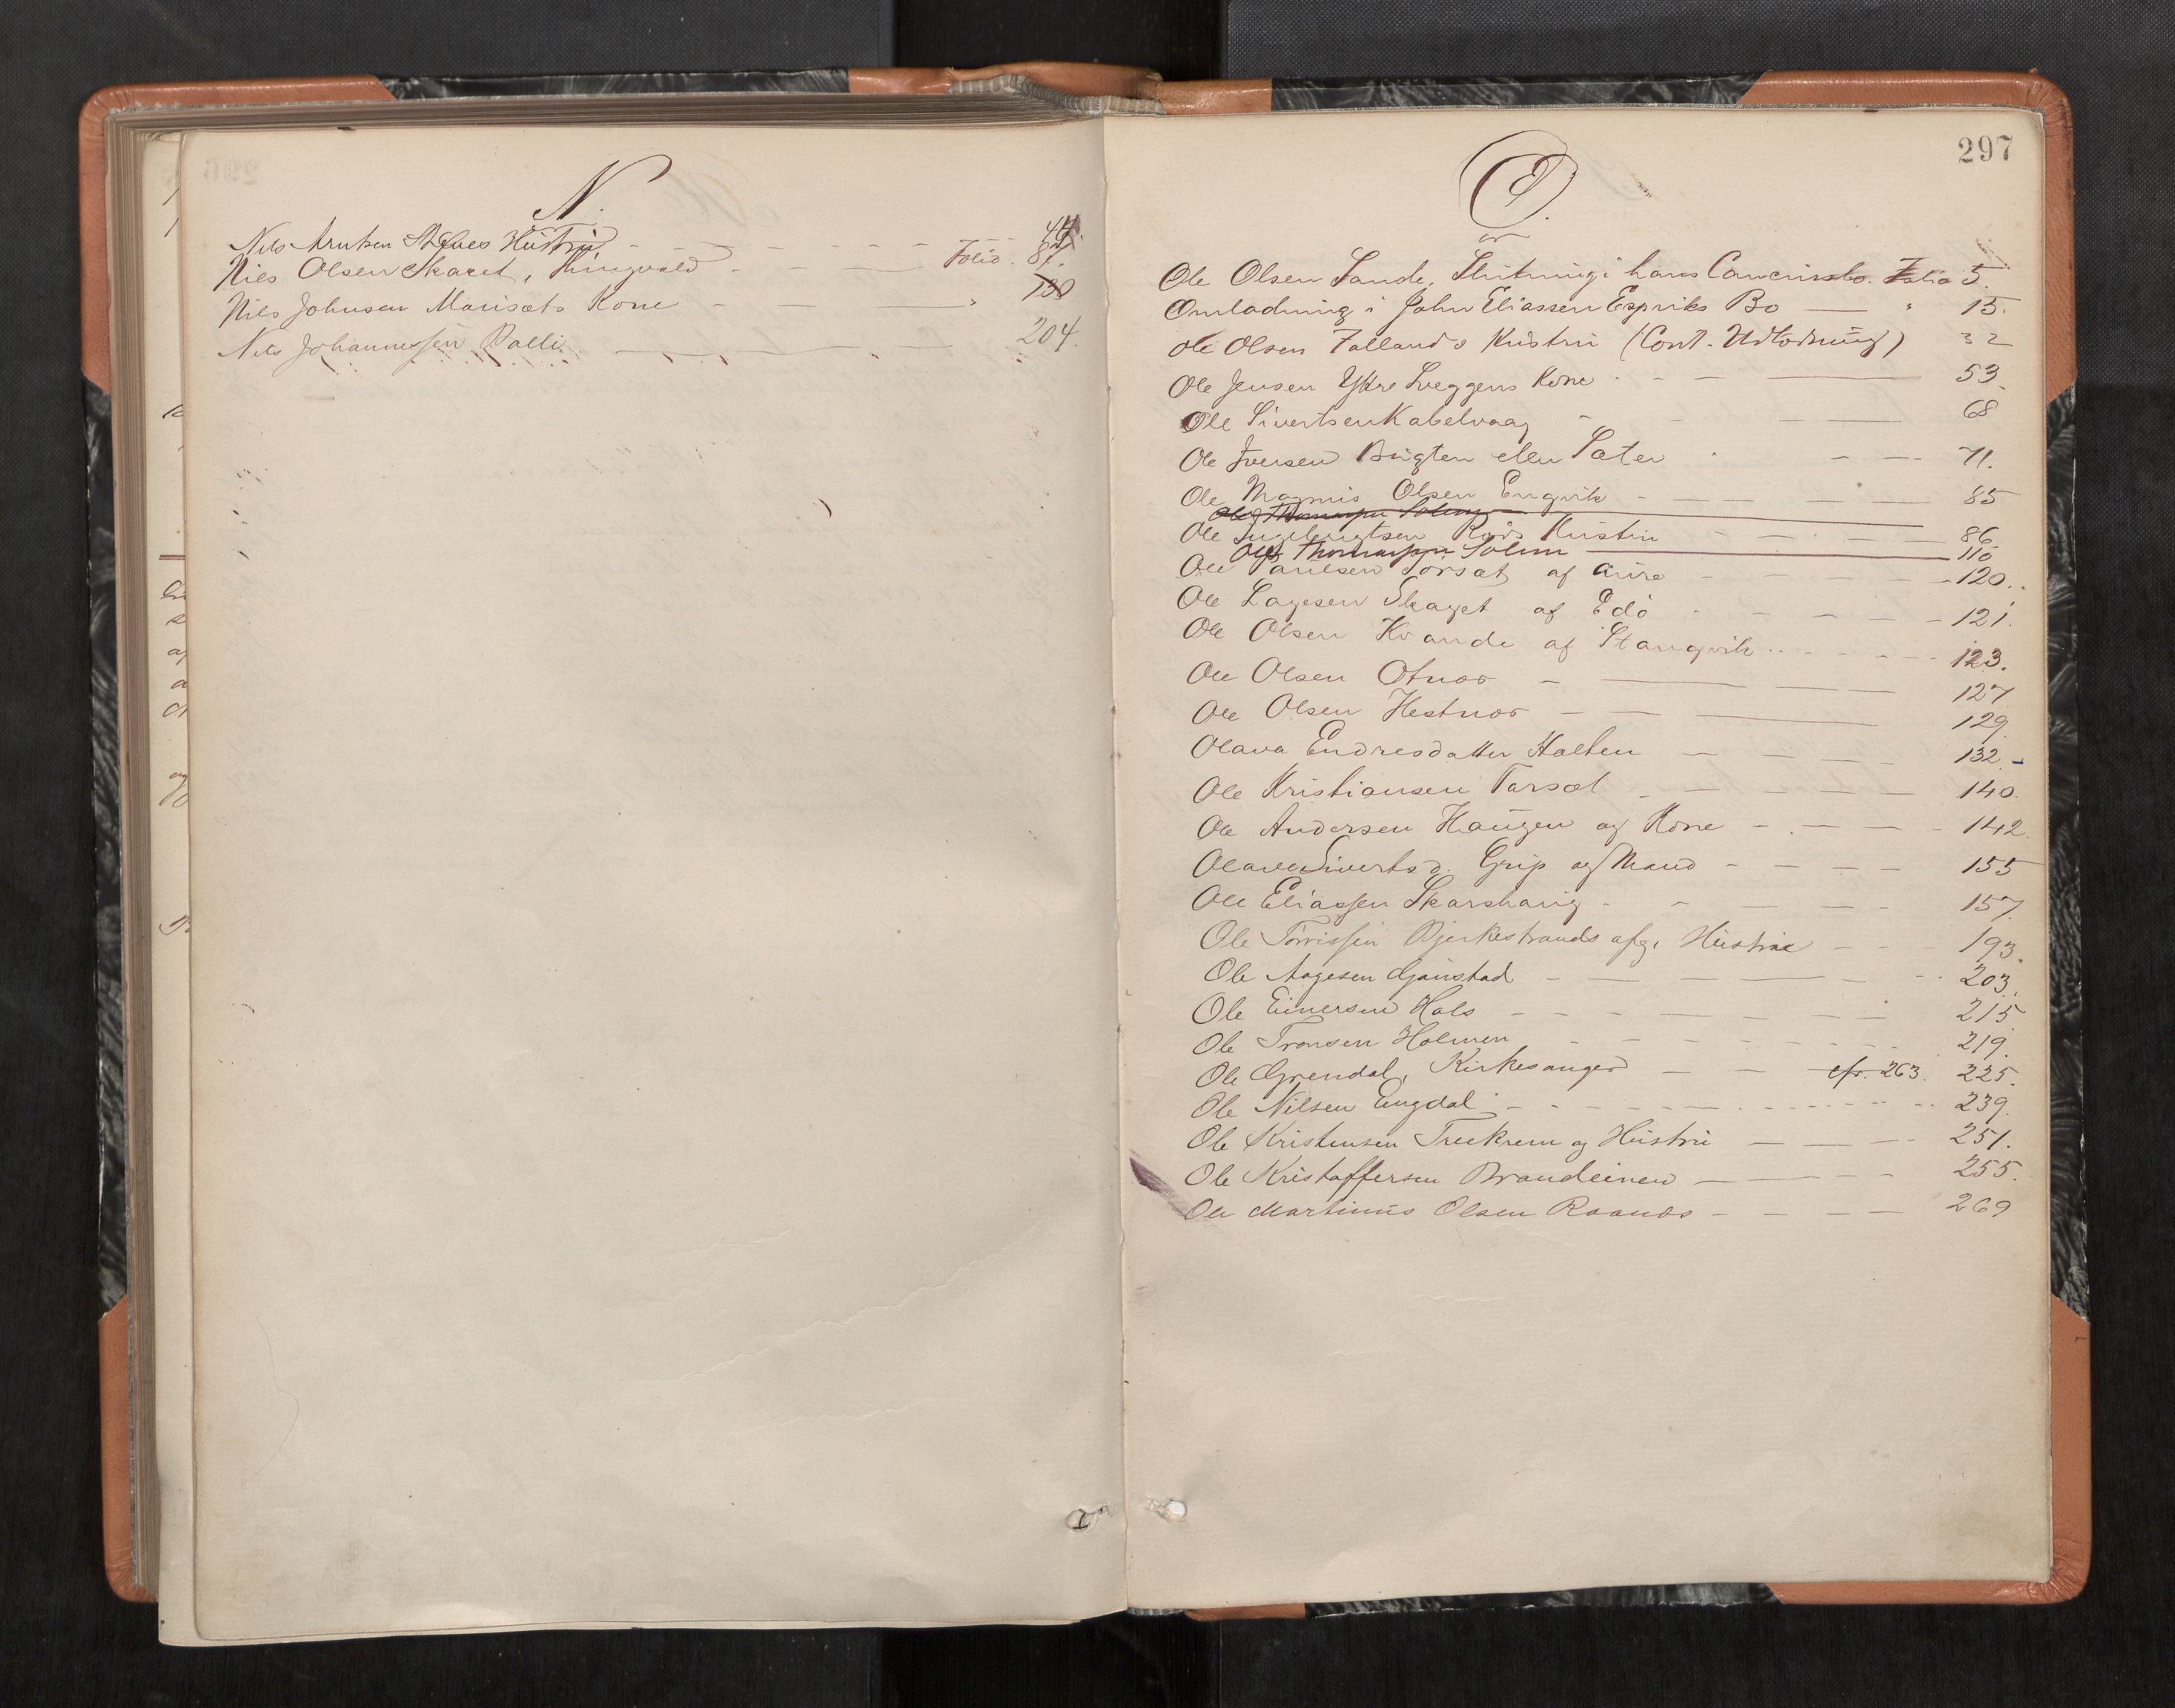 N.
Nils Knutsen Hustru - - - - 44.
Nils Olsen Skaret, Tingvold - - — Folio. 87.
Nils Johnsen Kone - — " 180
Nils Johannessen — — 204.
297
O.
Ole Olsen Sande, Slutning i hans Folio 5.
Omlodning i John Eliassen Espviks Bo — " 15.
Ole Olsen Fallands Hustru (Cont. Udlodning) 32
Ole Jensen Ytre Sveggens Kone - - - — 53
Ole Sivertsen Kabelvaag - - — 68
Ole Iversen eller Sæter - - - 71.
Ole Magnus Olsen Engvik - - — — 85
Ole Thomassen Solem —
Ole Ingebrigtsen Hustru - - - - 86
Ole Thomassen Solem — 110
Ole Paulsen Torsæt af Aure - - - - 120.
Ole Lagesen Skaget af Edø - - - - 121.
Ole Olsen Kvande af Stangvik - - - 123.
Ole Olsen Otnes - — — 127
Ole Olsen Hestnes - — — 129
Olava Endresdatter Holten — - - - 132.
Ole Kristiansen Torsæt - — — - 140
Ole Andersen Haugen og Kone - - - - 142.
Olava Sivertsd. Grip og Mand - - - - 155
Ole Eliassen Skarshaug - - - - 157
Ole Tørrissen Bjerkestrands afg. Hustru - - 193.
Ole Aagesen Gjøustad - — — - 203.
Ole Einersen Hals - - - - - 215
Ole Tronsen Holmen - - - - 219.
Ole Grendal, Kirkesanger — — cfr. 263. 225.
Ole Nilsen Engdal - - - - 239.
Ole Kristensen Trækrem og Hustru — — - 251.
Ole Kristoffersen Brandeinen — - - - 255.
Ole Martinus Olsen Raanes - - - - 269